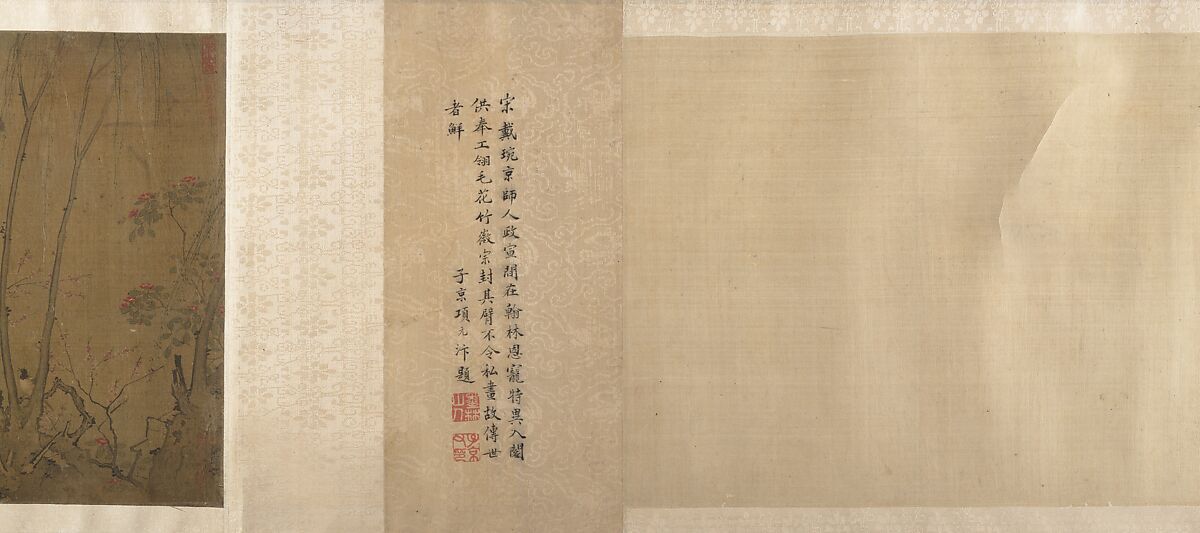 宋戴琬京師人政宣間在翰林恩寵特異入閣
供奉工翎毛花竹徽宗封其臂不令私畫故傳世
者鮮
子京項元汴題